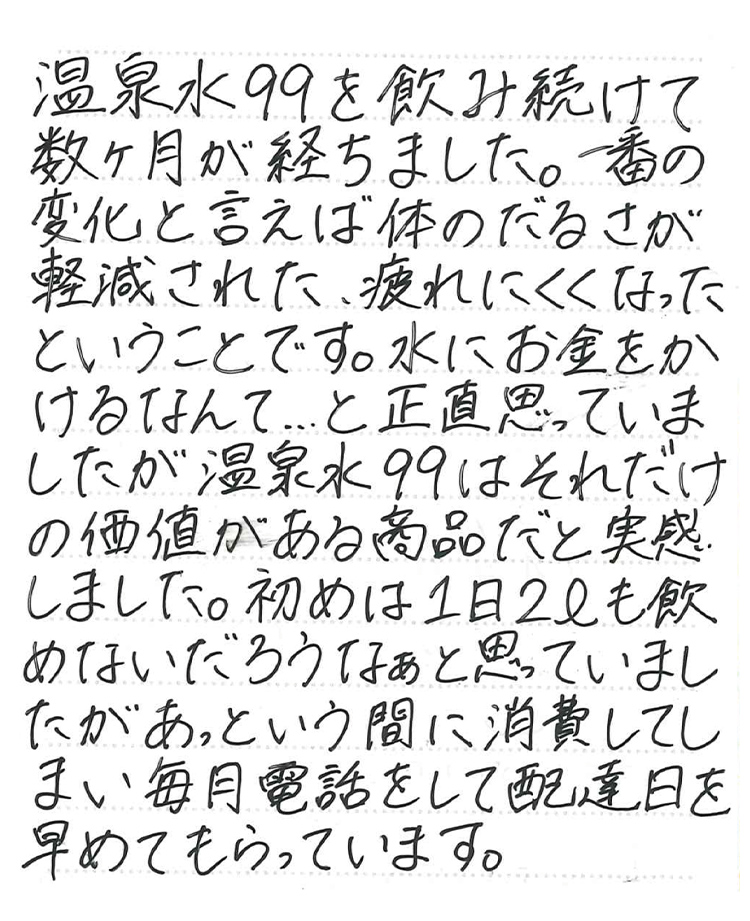 温泉水99を飲み続けて
数ヶ月が経ちました。一番の
変化と言えば体のだるさが
軽減された、疲れにくくなった
ということです。水にお金をか
けるなんて…と正直思っていま
したが温泉水99はそれだけ
の価値がある商品だと実感
しました。初めは1日2ℓも飲
めないだろうなぁと思っていまし
たがあっという間に消費してし
まい毎月電話をして配達日を
早めてもらっています。